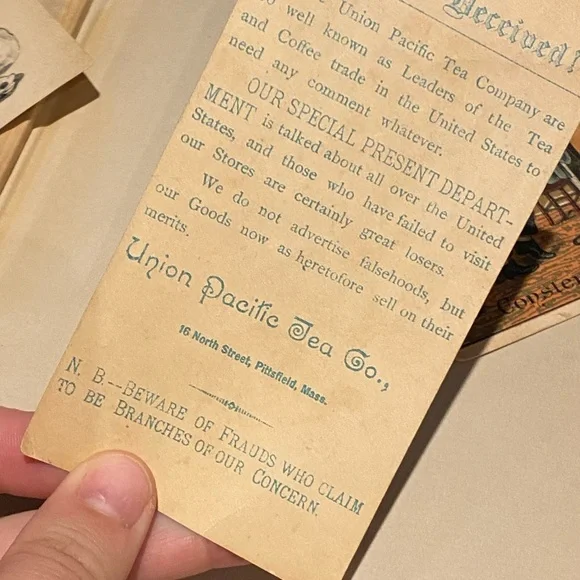 Deceived!
Union Pacific Tea Company are
so well known as Leaders of the Tea
and Coffee trade in the United States to
need any comment whatever.
OUR SPECIAL PRESENT DEPART-
MENT is talked about all over the United
States, and those who have failed to visit
our Stores are certainly great losers.
We do not advertise falsehoods, but
our Goods now as heretofore sell on their
merits.
Union Pacific Tea Co.,
16 North Street, Pittsfield, Mass.
N. B.--BEWARE OF FRAUDS WHO CLAIM
TO BE BRANCHES OF OUR CONCERN.